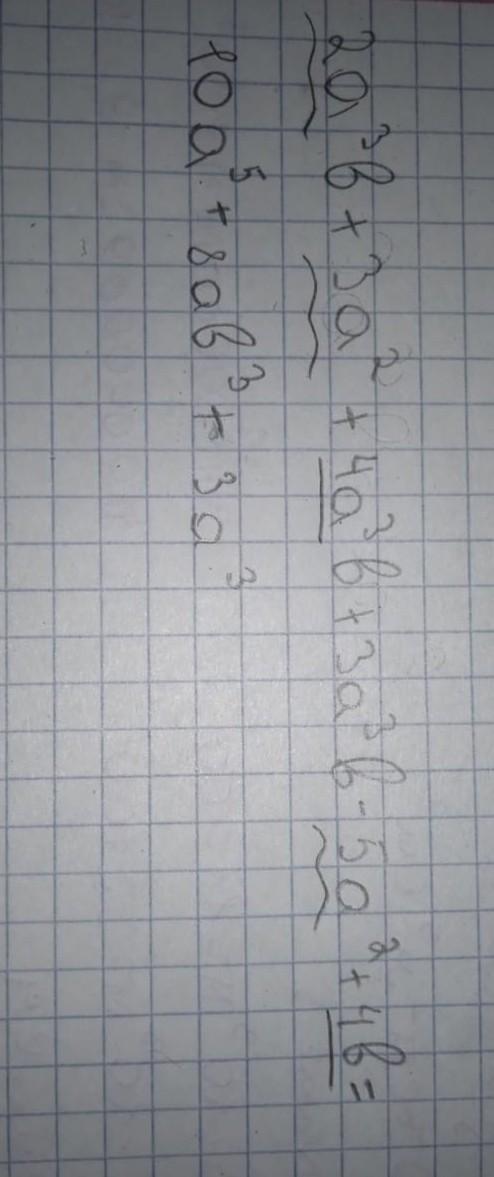 2a³b + 3a² + 4a³b + 3a³b - 5a² + 4b =
10a⁵ + 8ab³ + 3a³